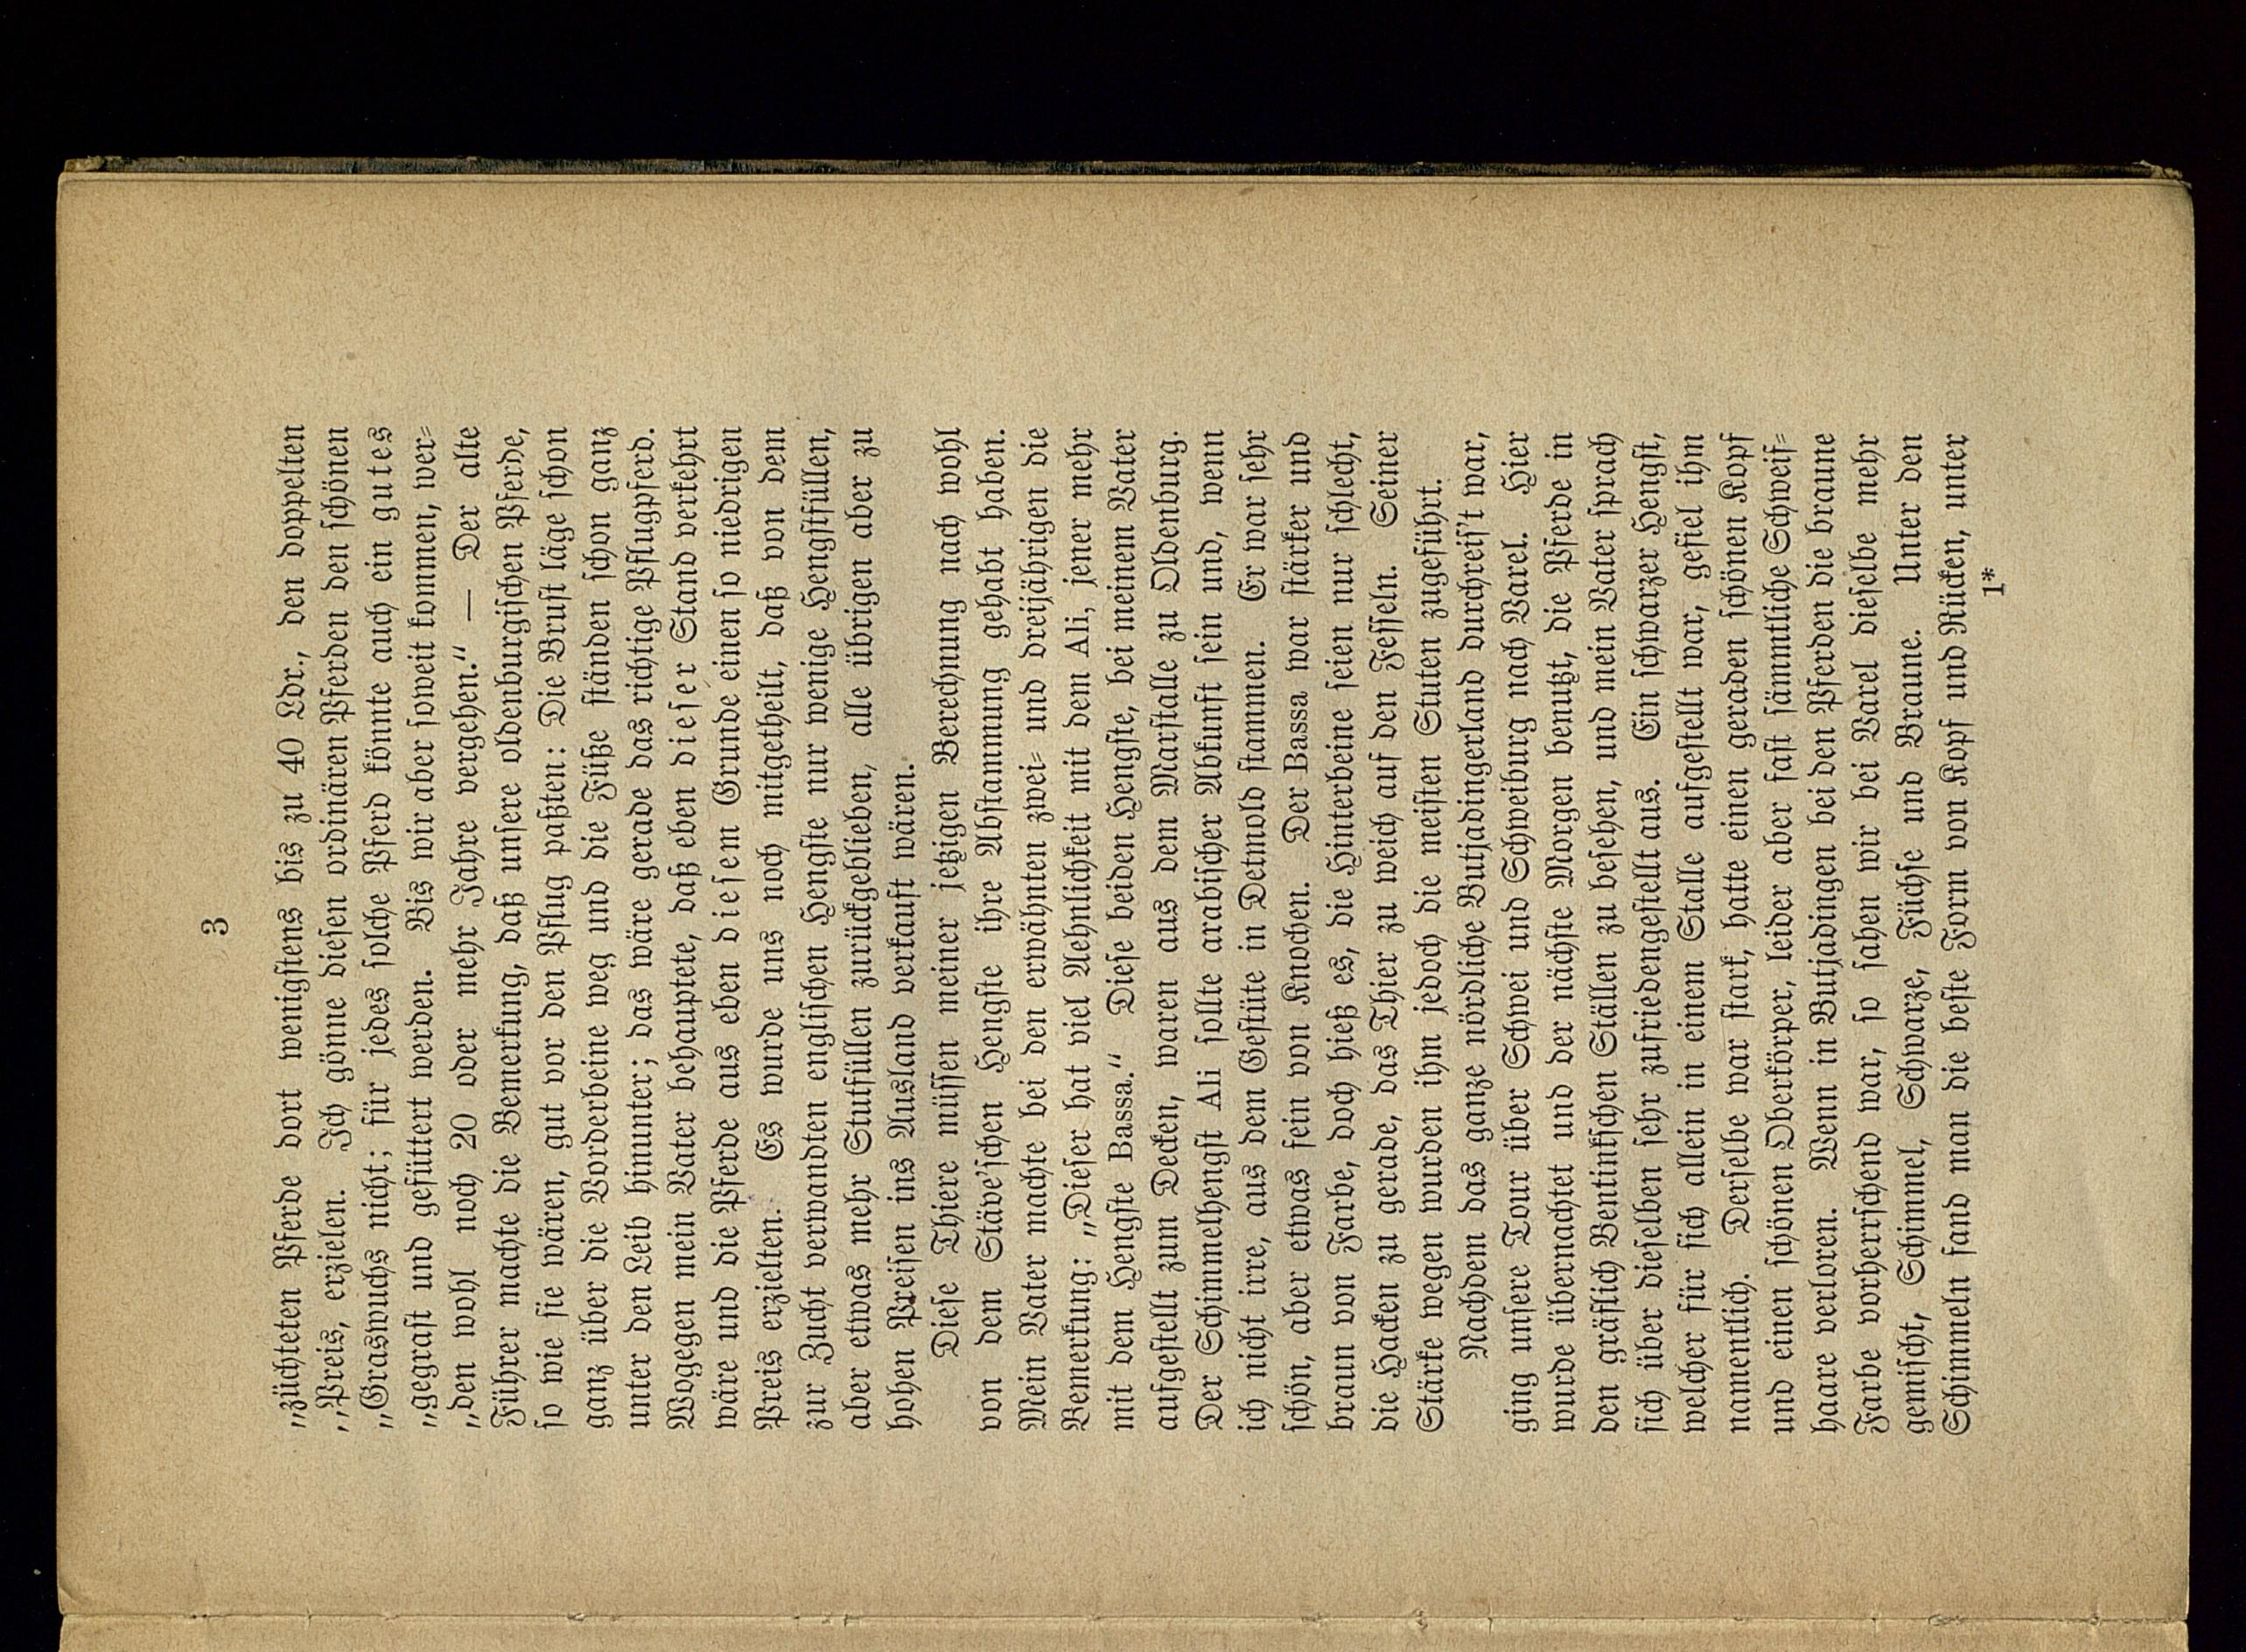 3
„züchteten Pferde dort wenigstens bis zu 40 Ldr., den doppelten
„Preis, erzielen. Ich gönne diesen ordinären Pferden den schönen
„Graswuchs nicht; für jedes solche Pferd könnte auch ein gutes
„gegrast und gefüttert werden. Bis wir aber soweit kommen, wer-
„den wohl noch 20 oder mehr Jahre vergehen.“ — Der alte
Führer machte die Bemerkung, daß unsere oldenburgischen Pferde,
so wie sie wären, gut vor den Pflug paßten: Die Brust läge schon
ganz über die Vorderbeine weg und die Füße ständen schon ganz
unter den Leib hinunter; das wäre gerade das richtige Pflugpferd.
Wogegen mein Vater behauptete, daß eben dieser Stand verkehrt
wäre und die Pferde aus eben diesem Grunde einen so niedrigen
Preis erzielten. Es wurde uns noch mitgetheilt, daß von dem
zur Zucht verwandten englischen Hengste nur wenige Hengstfüllen,
aber etwas mehr Stutfüllen zurückgeblieben, alle übrigen aber zu
hohen Preisen ins Ausland verkauft wären.
Diese Thiere müssen meiner jetzigen Berechnung nach wohl
von dem Stäve'schen Hengste ihre Abstammung gehabt haben.
Mein Vater machte bei den erwähnten zwei- und dreijährigen die
Bemerkung: „Dieser hat viel Aehnlichkeit mit dem Ali, jener mehr
mit dem Hengste Bassa.“ Diese beiden Hengste, bei meinem Vater
aufgestellt zum Decken, waren aus dem Marstalle zu Oldenburg.
Der Schimmelhengst Ali sollte arabischer Abkunft sein und, wenn
ich nicht irre, aus dem Gestüte in Detmold stammen. Er war sehr
schön, aber etwas fein von Knochen. Der Bassa war stärker und
braun von Farbe, doch hieß es, die Hinterbeine seien nur schlecht,
die Hacken zu gerade, das Thier zu weich auf den Fesseln. Seiner
Stärke wegen wurden ihm jedoch die meisten Stuten zugeführt.
Nachdem das ganze nördliche Butjadingerland durchreis't war,
ging unsere Tour über Schwei und Schweiburg nach Varel. Hier
wurde übernachtet und der nächste Morgen benutzt, die Pferde in
den gräflich Bentinkschen Ställen zu besehen, und mein Vater sprach
sich über dieselben sehr zufriedengestellt aus. Ein schwarzer Hengst,
welcher für sich allein in einem Stalle aufgestellt war, gefiel ihm
namentlich. Derselbe war stark, hatte einen geraden schönen Kopf
und einen schönen Oberkörper, leider aber fast sämmtliche Schweif-
haare verloren. Wenn in Butjadingen bei den Pferden die braune
Farbe vorherrschend war, so sahen wir bei Varel dieselbe mehr
gemischt, Schimmel, Schwarze, Füchse und Braune. Unter den
Schimmeln fand man die beste Form von Kopf und Rücken, unter
1*